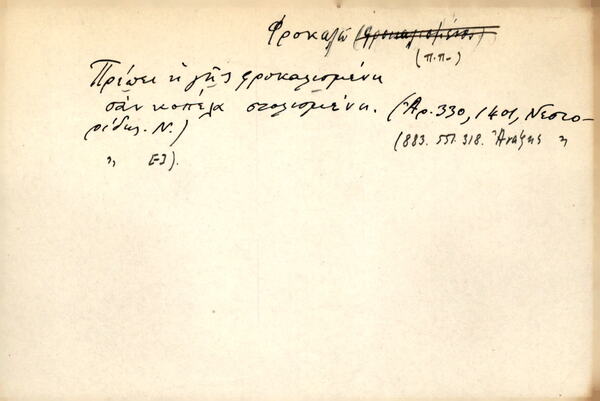 Φροκαλῶ (φροκαλισμένος)
(π.π.)
Πρέπει ἡ γῆς φροκαλισμένη
σὰν κοπέλα στολισμένη. (Ἀρ. 330, 1401, Νεστο-
ρίδης. Ν.)
(883. 551. 318. Ἀναξης "
" Ε3).